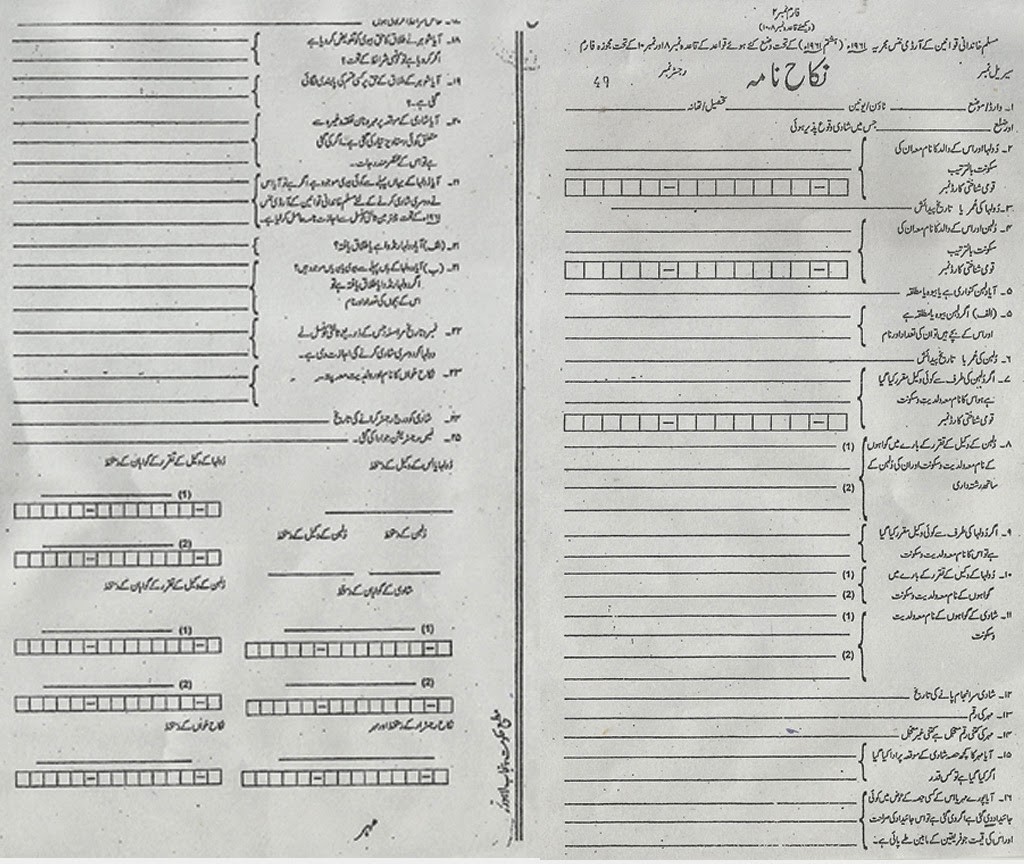 فارم نمبر ۲
(دیکھئے قاعدہ نمبر ۸-۱۰)
مسلم خاندانی قوانین کے آرڈی ننس مجریہ ۱۹۶۱ء (ہشتم ۱۹۶۱ء) کے تحت وضع کئے ہوئے قواعد کے قاعدہ نمبر ۸ اور نمبر ۱۰ کے تحت مجوزہ فارم
سیریل نمبر نکاح نامہ رجسٹر نمبر 49
۱۔ وارڈ/موضع ٹاؤن/یونین تحصیل/تھانہ
اور ضلع جس میں شادی وقوع پذیر ہوئی
۲۔ دُولہا اور اس کے والد کا نام معہ ان کی
سکونت بالترتیب
قومی شناختی کارڈ نمبر
۳۔ دُولہا کی عمر یا تاریخ پیدائش
۴۔ دُلہن اور اس کے والد کا نام معہ ان کی
سکونت بالترتیب
قومی شناختی کارڈ نمبر
۵۔ آیا دلہن کنواری ہے یا بیوہ یا مطلقہ
۵۔ (الف) اگر دُلہن بیوہ یا مطلقہ ہے
اور اس کے بچے ہیں تو ان کی تعداد اور نام
۶۔ دُلہن کی عمر یا تاریخ پیدائش
۷۔ اگر دُلہن کی طرف سے کوئی وکیل مقرر کیا گیا
ہے ہو اس کا نام معہ ولدیت و سکونت
قومی شناختی کارڈ نمبر
۸۔ دُلہن کے وکیل کے تقرر کے بارے میں گواہوں (1)
کے نام معہ ولدیت و سکونت اور ان کی دُلہن کے
ساتھ رشتہ داری (2)
۹۔ اگر دُولہا کی طرف سے کوئی وکیل مقرر کیا گیا
ہے تو اس کا نام معہ ولدیت و سکونت
۱۰۔ دُولہا کے وکیل کے تقرر کے بارے میں (1)
گواہوں کے نام معہ ولدیت و سکونت (2)
۱۱۔ شادی کے گواہوں کے نام معہ ولدیت (1)
و سکونت
(2)
۱۲۔ شادی سرانجام پانے کی تاریخ
۱۳۔ مہر کی رقم
۱۴۔ مہر کی کتنی رقم معجل ہے کتنی غیر معجل
۱۵۔ آیا مہر کا کچھ حصہ شادی کے موقعہ پر ادا کیا گیا
اگر کیا گیا ہے تو کس قدر
۱۶۔ آیا پورے مہر یا اس کے کسی حصہ کے عوض میں کوئی
جائیداد دی گئی ہے اگر دی گئی ہے تو اس جائیداد کی صراحت
اور اس کی قیمت جو فریقین کے مابین طے پائی ہے۔
۱۸۔ آیا شوہر نے طلاق کا حق بیوی کو تفویض کر دیا ہے
اگر کر دیا ہے تو کونسی شرائط کے تحت؟
۱۹۔ آیا شوہر کے طلاق کے حق پر کسی قسم کی پابندی لگائی
گئی ہے۔؟
۲۰۔ آیا شادی کے موقعہ پر مہر و نان نفقہ وغیرہ سے
متعلق کوئی دستاویز تیار کی گئی ہے۔ اگر کی گئی
ہے تو اس کے مختصر مندرجات۔
۲۱۔ آیا دُولہا کے یہاں پہلے سے کوئی بیوی موجود ہے اگر ہے تو آیا اس
نے دوسری شادی کرنے کے لئے مسلم خاندانی قوانین کے آرڈی ننس
۱۹۶۱ء کے تحت ثالثی کونسل سے اجازت نامہ حاصل کر لیا ہے۔
۲۱۔ (الف) آیا دولہا رنڈوا ہے یا طلاق یافتہ؟
۲۱۔ (ب) آیا دولہا کے ہاں پہلے سے بیوی یا بیویاں موجود ہیں؟
اگر دولہا رنڈوا یا طلاق یافتہ ہے تو
اس کے بچوں کی تعداد اور نام
۲۲۔ نمبر و تاریخ مراسلہ جس کے ذریعہ ثالثی کونسل نے
دولہا کو دوسری شادی کرنے کی اجازت دی ہے۔
۲۳۔ نکاح خواں کا نام اور ولدیت معہ
۲۴۔ شادی کو درج رجسٹر کرانے کی تاریخ
۲۵۔ فیس رجسٹریشن جو ادا کی گئی۔
دُولہا یا اس کے وکیل کے دستخط دُولہا کے وکیل کے تقرر کے گواہان کے دستخط
(1)
دُلہن کے دستخط دُلہن کے وکیل کے دستخط
(2)
شادی کے گواہان کے دستخط دُلہن کے وکیل کے تقرر کے گواہان کے دستخط
(1) (1)
(2) (2)
نکاح رجسٹرار کے دستخط اور مہر نکاح خواں کے دستخط
مہر
مطبع حکومت پنجاب لاہور